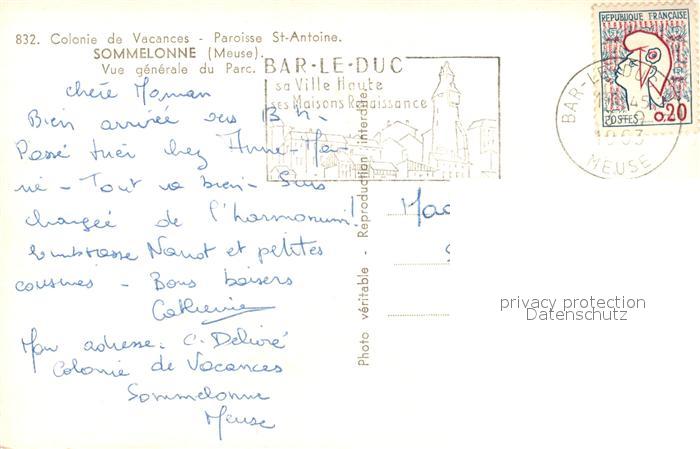 832. Colonie de Vacances - Paroisse St-Antoine.
SOMMELONNE (Meuse).
Vue générale du Parc.
BAR-LE-DUC
sa Ville Haute
ses Maisons Renaissance
REPUBLIQUE FRANÇAISE
POSTES 0,20
BAR-LE-DUC
1963
MEUSE
chère Maman
Bien arrivée vers 13 h.
Passé hier chez Anne-Ma-
rie - Tout va bien - Suis
chargée de l'harmonium!
Embrasse Nanot et petites
cousines - Bons baisers
Catherine
Mon adresse: C. Delivré
Colonie de Vacances
Sommelonne
Meuse
Photo véritable - Reproduction interdite.
Mad
privacy protection
Datenschutz